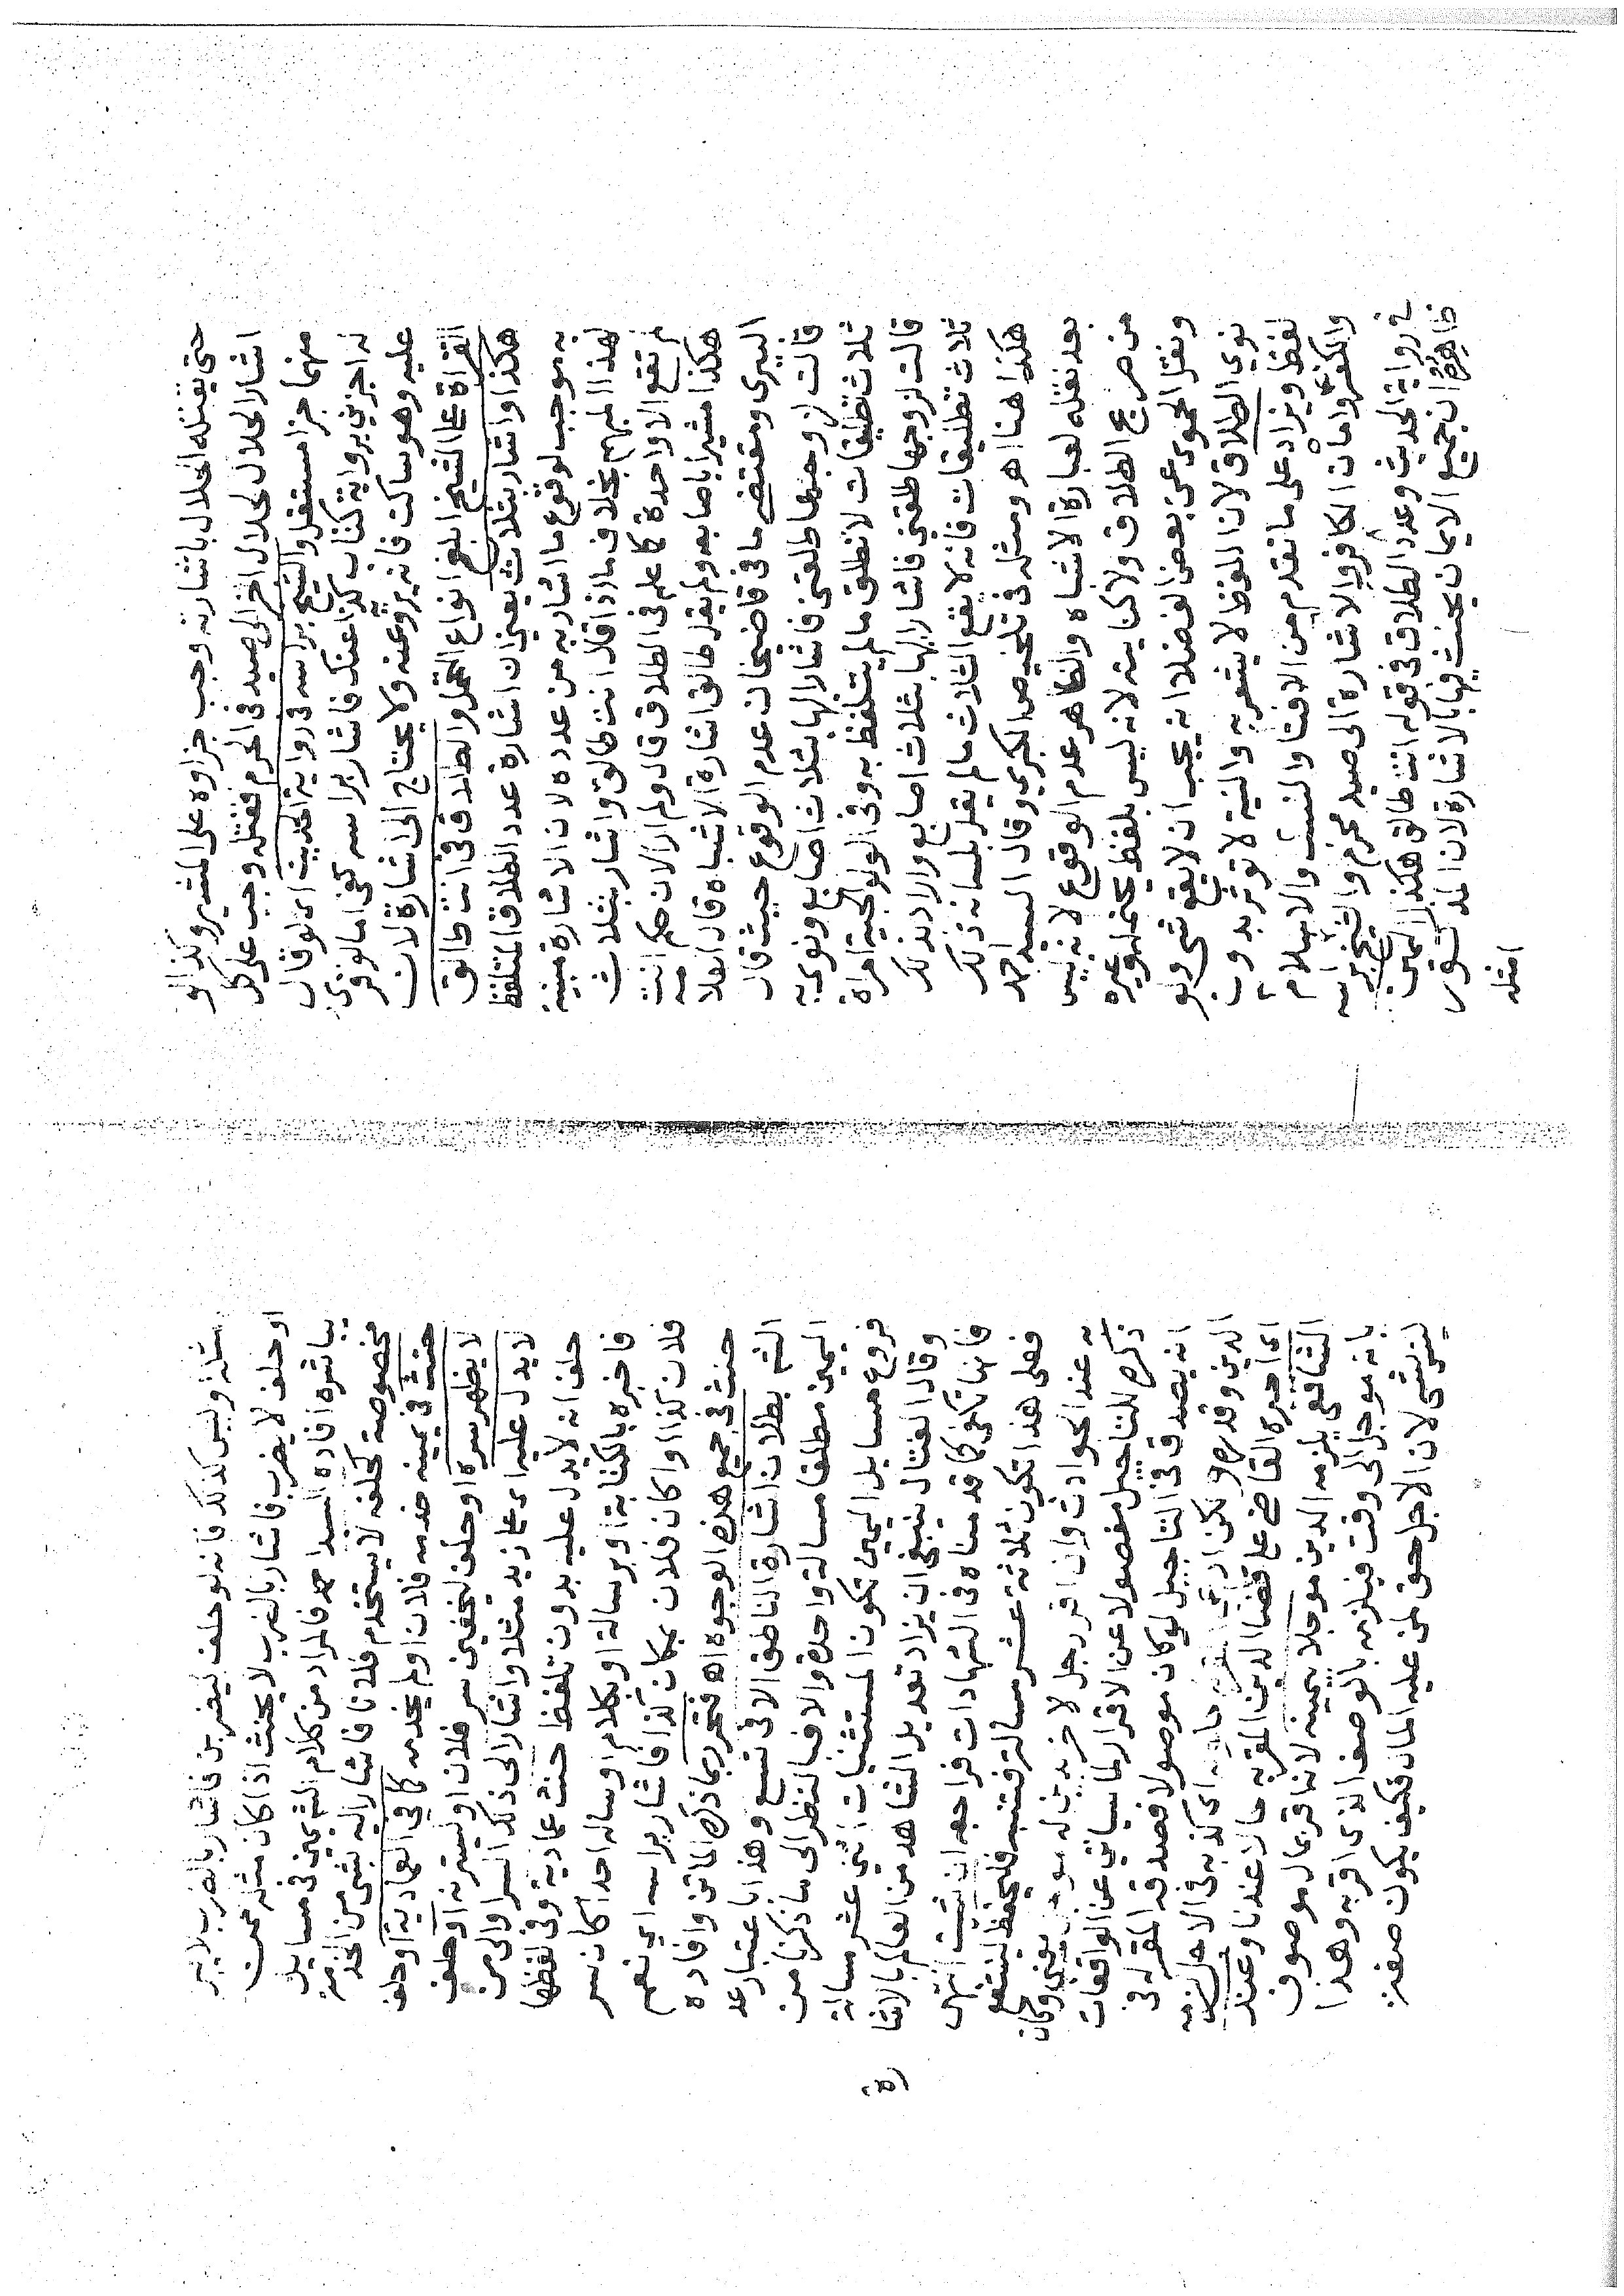 حتى يقتله الحلال باشارته وجب جزاوه على المشير وكذا لو
اشار الحلال لحلال اخر الى صيد في الحرم فقتله وجب على كل
منهما جزا مستقل والشيخ براسه في رواية الحديث اي لو قال
له اجزني برواية كتاب كذا عنك فاشار براسه كفى اما لو قرى
عليه وهو ساكت فانه يرويه عنه ولا يحتاج الى اشارة لان
القراة على الشيخ ابلغ انواع التحمل والطلاق في انت طالق
هكذا واشار بثلاث يعني ان اشارة عدد الطلاق المتلفظ
به موجب لوقوع ما اشار به من عدده لان الاشارة مبينة
لهذا المبهم بخلاف ما اذا قال انت طالق واشار بثلاث
لم تقع الا واحدة كما علم في الطلاق قال ولم ار الان حكم انت
هكذا مشيرا باصابعه ولم يقل طالق اشارة الاشباه قال العلامه
البيري ومقتضى ما في قاضيخان عدم الوقوع حيث قال
قالت لزوجها طلقني فاشار اليها بثلاث اصابع ونوى به
ثلاث تطليقات لا تطلق ما لم يتلفظ به وفي الولوالجية امراة
قالت لزوجها طلقني فاشار اليها بثلاث اصابع واراد بذلك
ثلاث تطليقات فانه لا يقع الثلاث ما لم يقل بلسانه ذلك
هكذا هنا اهـ ومثله في تلخيص الكبرى وقال السيد احمد
بعد نقله لعبارة الاشباه والظاهر عدم الوقوع لانه ليس
من صريح الطلاق ولا كنايته لانه ليس بلفظ يحتمله وغيره
ونقل الحموي عن بعض الفضلا انه يجب ان لا يقع شي ولو
نوى الطلاق لان اللفظ لا يشعر به والنية لا توثر بدون
لفظ ويزاد على ما تقدم من الافتا والنسب والاسلام
والكفر وامان الكافر والاشارة الى صيد محرم والشيخ براسه
في رواية الحديث وعدد الطلاق في قوله انت طالق هكذا اليمين
ظاهره ان جميع الايمان يحنث فيها بالاشارة لان المذكور
امثلة
مثلة وليس كذلك فانه لو حلف ليضربن فاشار بالضرب لا يبر
او حلف لا يضرب فاشار بالضرب لا يحنث اذا كان مثله ممن
يباشره افاده السيد احمد فالمراد من كلام الشمني في مسايل
مخصوصة كحلفه لا يستخدم فلانا فاشار اليه بشي من الخدمة
حنث في يمينه خدمه فلان او لم يخدمه كما في العمادية او حلف
لا يظهر سره او حلف ليخفين سر فلان او ليسترنه او حلف
لا يدل عليه اي على زيد مثلا واشار الى ذلك السر والى من
حلف انه لا يدل عليه بدون تلفظ حنث عمادية وفي لفظها
فاخبره بالكتابة او برسالة او بكلام او ساله احد اكان سر
فلان كذا او اكان فلان بمكان كذا فاشار براسه اي نعم
حنث في جميع هذه الوجوه اهـ فتحرر بما ذكره الماتن وافاده
الشم بطلان اشارة الناطق الا في تسع وهذا باعتبار عد
اليمين مطلقا مسالة واحدة والا فبالنظر الى ما ذكرنا من
فروع مسايل اليمين تكون المستثنيات اثني عشر مسالة
وقال الفتال ينبغي ان يزاد تعديل الشاهد من العالم بالاشا
رة
فانها تكفي كما قدمناه في الشهادات فراجعه ان شيت انتهى
فعلى هذا تكون ثلاثة عشر مسالة فتنبه فليحفظ لينتفع
به عند الحوادث وان اقر رجل لاخر بدين له موجل يعني وكان
ذكره للتاجيل مفصولا عن الاقرار لما سياتي عن الواقعات
انه يصدق في التاجيل لو كان موصولا فصدقه المقر له في
الدين وقدره ولكن ادعى المقر له حلوله اي كذبه في الاجل لزمه
اي اجبره القاضي على قضا الدين المقر به حالا عندنا وعند
الشافعي يلزمه الدين موجلا بيمينه لانه اقر بمال موصوف
بانه موجل الى وقت فيلزمه بالوصف الذي اقر به وهذا
ليس بشي لان الاجل حق لمن عليه المال فكيف يكون صفة